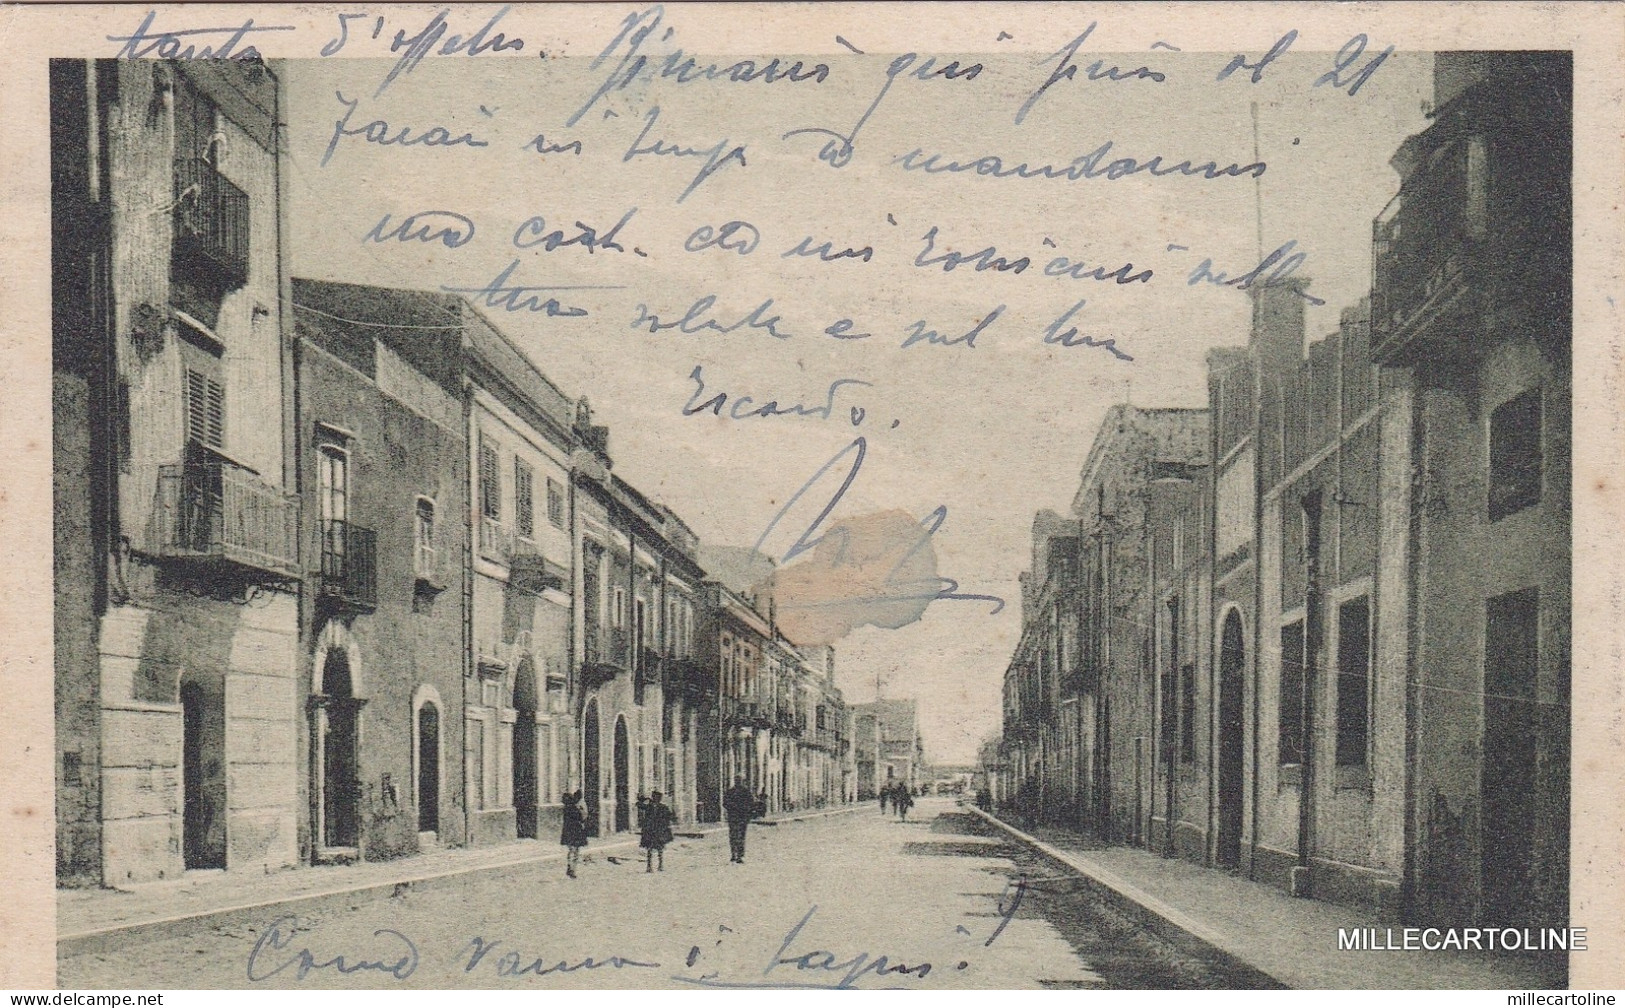 tanto d'affetto. Rimarrò qui fino al 21
Farai in tempo a mandarmi
una cart. che mi rassicuri sulla
tua salute e sul tuo
ricordo.
Come vanno i
MILLECARTOLINE
millecartoline